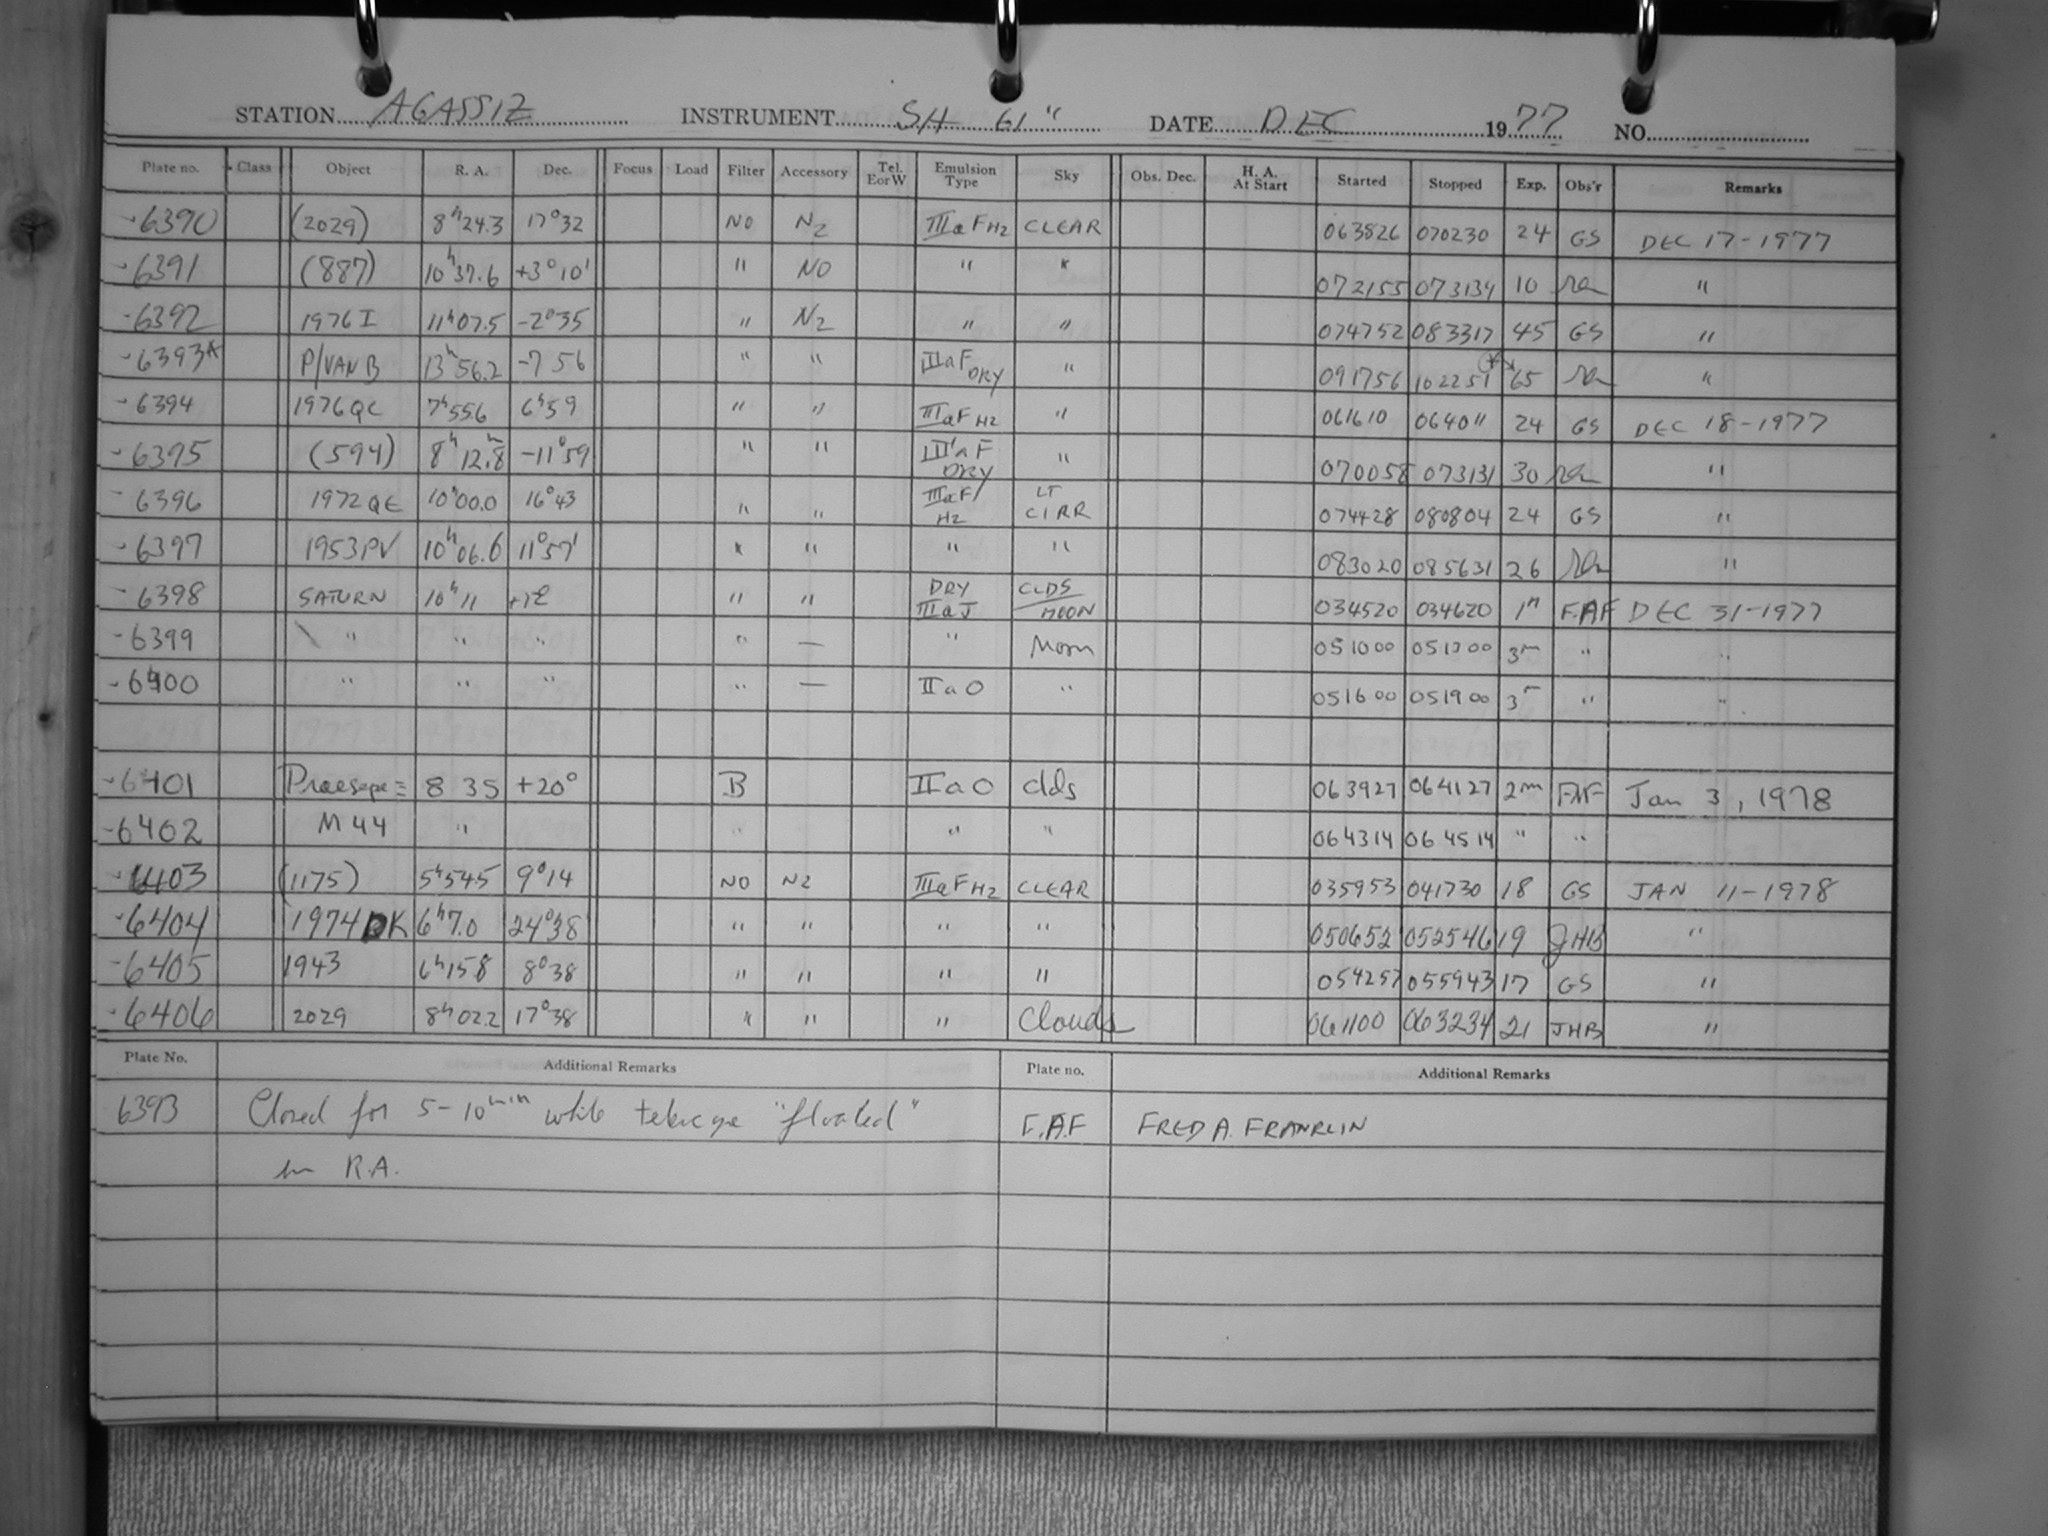 STATION AGASSIZ INSTRUMENT SH 61" DATE DEC 1977 NO.
Plate no. Class Object R. A. Dec. Focus Load Filter Accessory Tel. E or W Emulsion Type Sky Obs. Dec. H. A. At Start Started Stopped Exp. Obs'r Remarks
-6390 (2029) 8h24.3 17°32 NO N2 IIIaF H2 CLEAR 063826 070230 24 GS DEC 17-1977
-6391 (887) 10h37.6 +3°10' " NO " " 072155 073134 10 "
-6392 1976 I 11h07.5 -2°35 " N2 " " 074752 083317 45 GS "
-6393* P/VAN B 13h56.2 -7 56 " " IIaF DRY " 091756 102251 * 65 "
-6394 1976QC 7h55.6 6h59 " " IIIaF H2 " 061610 064011 24 GS DEC 18-1977
-6395 (594) 8h12.8m -11°59 " " IIIaF DRY " 070058 073131 30 "
-6396 1972QE 10h00.0 16°43 " " IIIaF/ H2 LT CIRR 074428 080804 24 GS "
-6397 1953PV 10h06.6 11°57' " " " " 083020 085631 26 "
-6398 SATURN 10h11 +12 " " DRY IIIaJ CLDS/MOON 034520 034620 1m F.A.F DEC 31-1977
-6399 " " " " — " Moon 051000 051300 3m " "
-6400 " " " " — IIaO " 051600 051900 3m " "
-6401 Praesepe = 8 35 +20° B IIaO clds 063927 064127 2m FAF Jan 3, 1978
-6402 M44 " " " " 064314 064514 " "
-6403 (1175) 5h54.5 9°14 NO N2 IIIaF H2 CLEAR 035953 041730 18 GS JAN 11-1978
-6404 1974 DK 6h7.0 24°38 " " " " 050652 052546 19 JHB "
-6405 1943 6h15.8 8°38 " " " " 054257 055943 17 GS "
-6406 2029 8h02.2 17°38 " " " Clouds 061100 063234 21 JHB "
Plate No. Additional Remarks Plate no. Additional Remarks
6393 Closed for 5-10min while telescope "floated" F.A.F FRED A. FRANKLIN
in R.A.